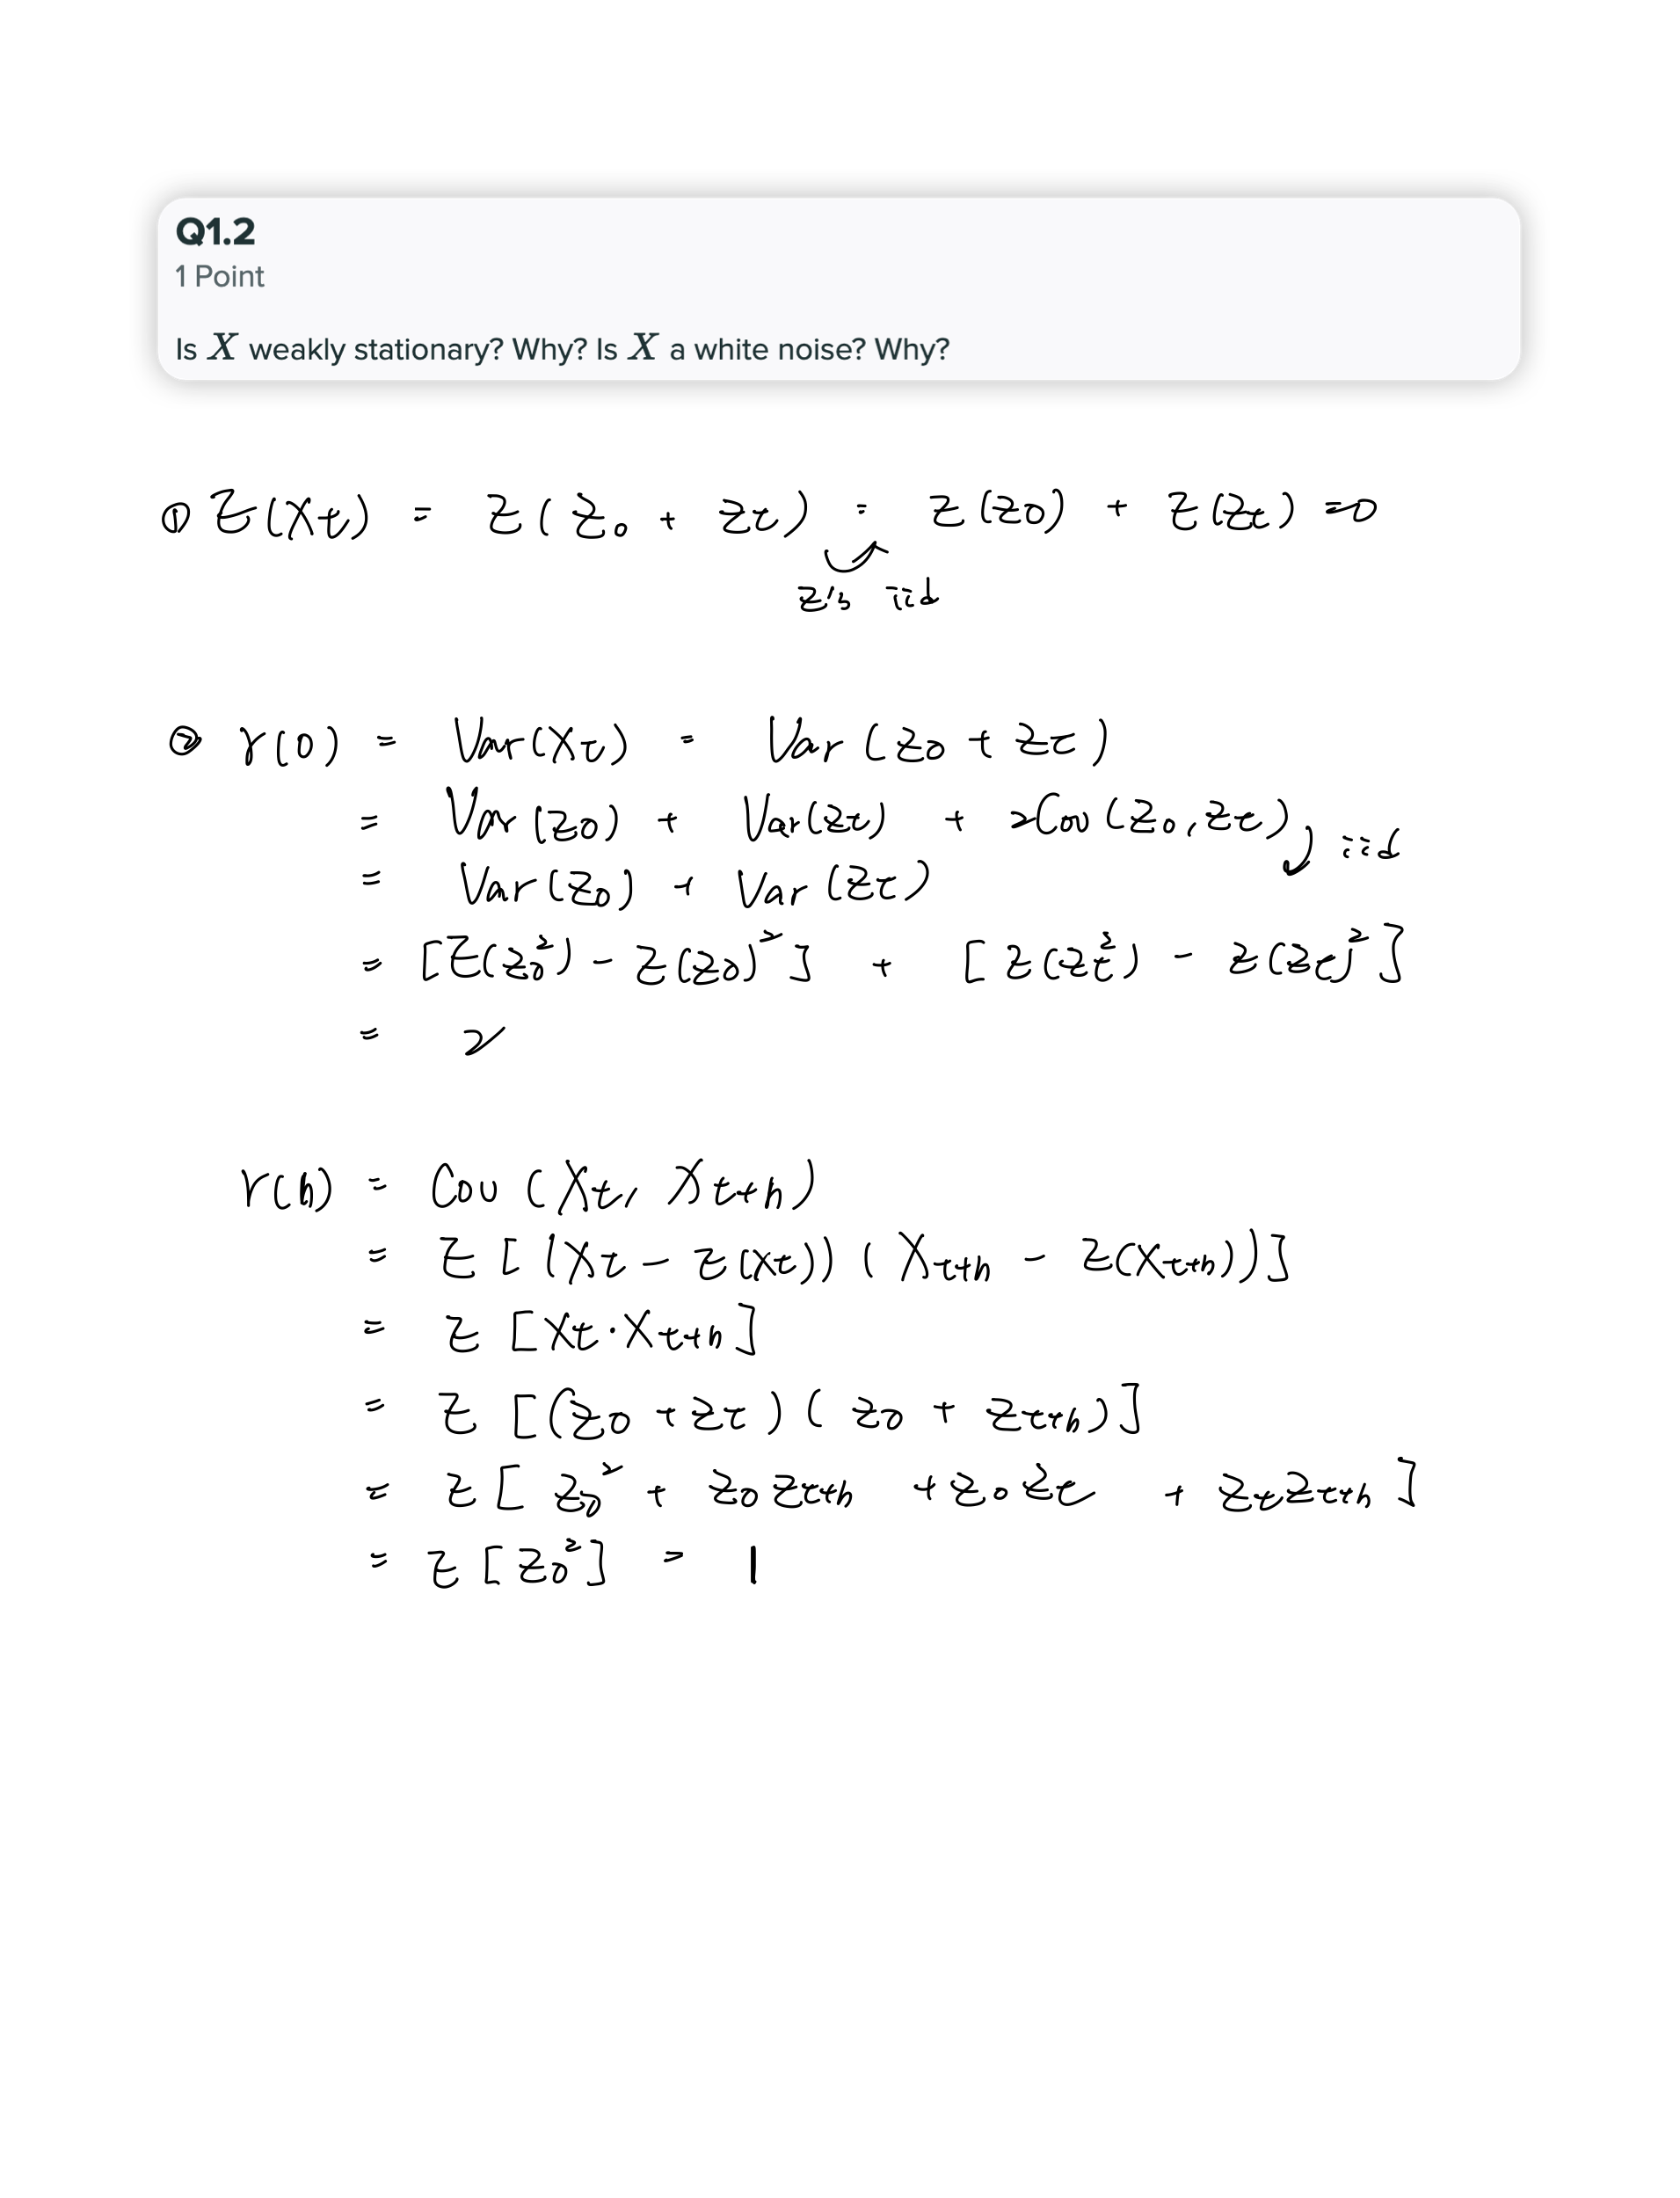 Q1.2
1 Point
Is X weakly stationary? Why? Is X a white noise? Why?
① E(Xt) = E(Z0 + Zt) = E(Z0) + E(Zt) = 0
Z's iid
② γ(0) = Var(Xt) = Var(Z0 + Zt)
= Var(Z0) + Var(Zt) + 2Cov(Z0, Zt) iid
= Var(Z0) + Var(Zt)
= [E(Z0²) - E(Z0)²] + [E(Zt²) - E(Zt)²]
= 2
γ(h) = Cov(Xt, Xt+h)
= E[(Xt - E(Xt))(Xt+h - E(Xt+h))]
= E[Xt·Xt+h]
= E[(Z0 + Zt)(Z0 + Zt+h)]
= E[Z0² + Z0Zt+h + Z0Zt + ZtZt+h]
= E[Z0²] = 1